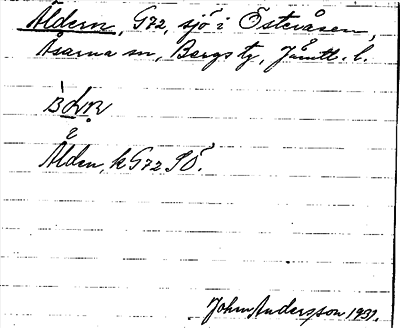 Åldern, G72, sjö i Östevåsen,
Åsarna sn, Bergs tg, Jämtl. l.
Ålden, k G72 SÖ.
John Andersson 1931.